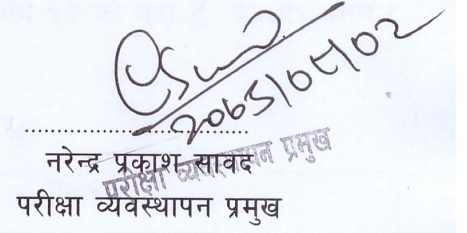 2065/05/02
..............................
नरेन्द्र प्रकाश सावद
परीक्षा व्यवस्थापन प्रमुख
परीक्षा व्यवस्थापन प्रमुख